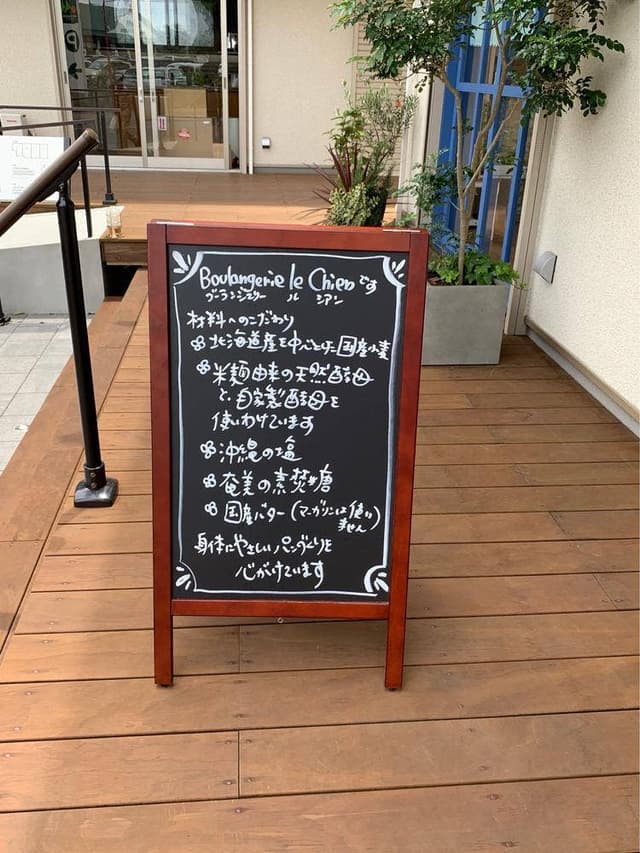 Boulangerie le Chienです
ブーランジェリー ル シアン
材料へのこだわり
北海道産を中心とした国産小麦
米麹由来の天然酵母
と、自家製酵母を
使いわけています
沖縄の塩
奄美の素焚糖
国産バター(マーガリンは使い
ません)
身体にやさしいパンづくりを
心がけています
P